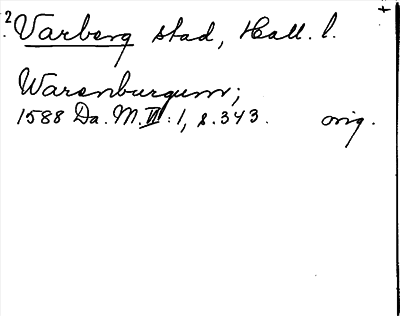 2 Varberg stad, Hall. l. +
Warenburgum;
1588 Da. M. III: 1, s. 343. orig.